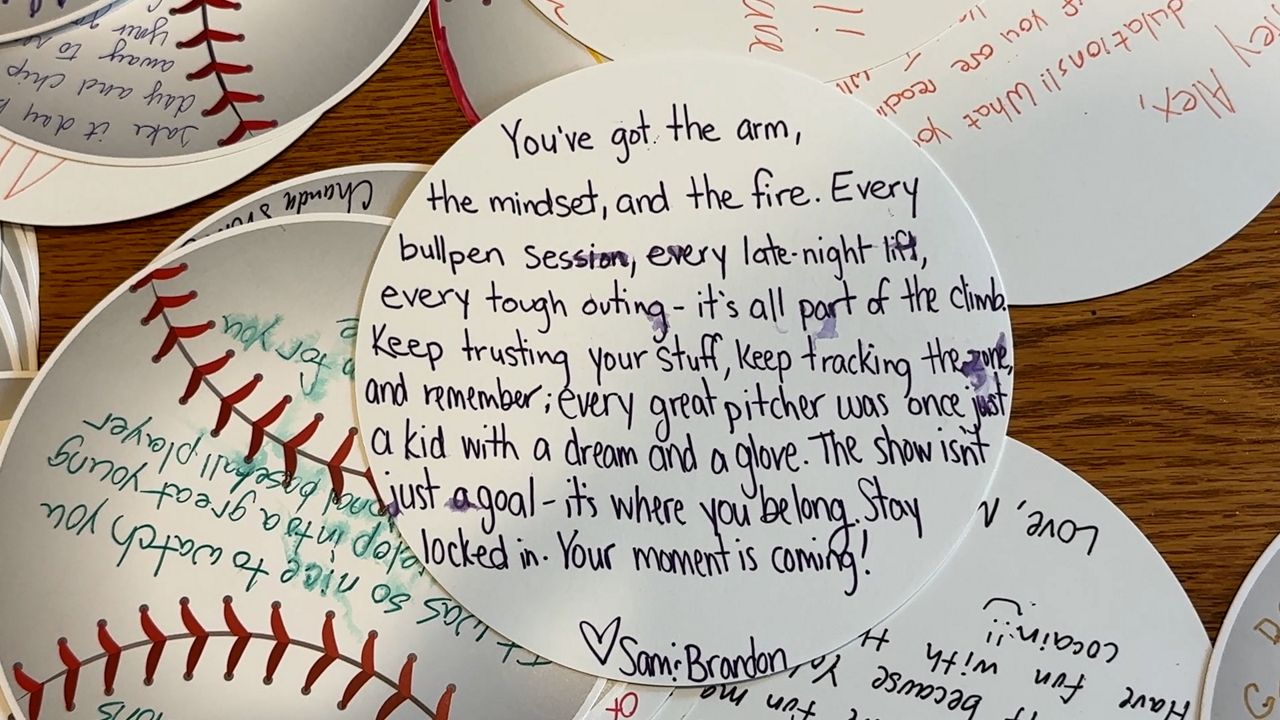 You've got the arm,
the mindset, and the fire. Every
bullpen session, every late-night lift,
every tough outing - it's all part of the climb.
Keep trusting your stuff, keep tracking the zone,
and remember; every great pitcher was once just
a kid with a dream and a glove. The show isn't
just a goal - it's where you belong. Stay
locked in. Your moment is coming!
♡ Sam: Brandon
Alex,
dulations!! What yo
f you are readi
Take it day b
day and chip
away to re
your go
Chanda
It was so nice to watch you
elop into a great young
onal baseball player
for you
ions
Love, N
Have fun with
cocain!!
because
fun me
to